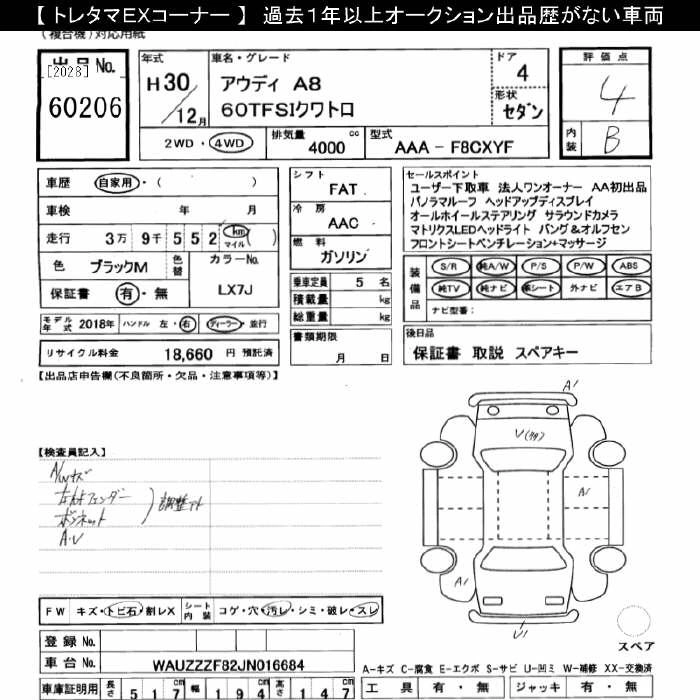 【 トレタマＥＸコーナー 】 過去１年以上オークション出品歴がない車両
(複合機)対応用紙
出品No.
[2028]
60206
年式
H30
12月
車名・グレード
アウディ A8
60TFSIクワトロ
ドア
4
形状
セダン
評価点
4
内装
B
2WD・4WD
排気量
4000 cc
型式
AAA - F8CXYF
車歴 自家用・( )
車検 年 月
走行 3万 9千 5 5 2 km マイル ( )
色 ブラックM
色替
カラーNo.
LX7J
保証書 有・無
シフト
FAT
冷房
AAC
燃料
ガソリン
乗車定員 5 名
積載量 kg
総重量 kg
書類期限
月 日
セールスポイント
ユーザー下取車 法人ワンオーナー AA初出品
パノラマルーフ ヘッドアップディスプレイ
オールホイールステアリング サラウンドカメラ
マトリクスLEDヘッドライト バング＆オルフセン
フロントシートベンチレーション+マッサージ
装備品
S/R 純A/W P/S P/W ABS
純TV 純ナビ 革シート 外ナビ エアB
ナビ型番：
モデル年式 2018年 ハンドル 左・右 ディーラー・並行
リサイクル料金 18,660 円 預託済
後日品
保証書 取説 スペアキー
【出品店申告欄(不良箇所・欠品・注意事項等)】
【検査員記入】
A/Wキズ
ボンネット
調整
A・U
A1
A1
A1
U1
スペア
FW キズ・トビ石・割レX
シート内装 コゲ・穴・汚レ・シミ・破レ・スレ
登録 No.
車台 No. WAUZZZF82JN016684
A-キズ C-腐食 E-エクボ S-サビ U-凹ミ W-補修 XX-交換済
車庫証明用 長さ 517 cm 幅 194 cm 高さ 147 cm
工具 有・無 ジャッキ 有・無